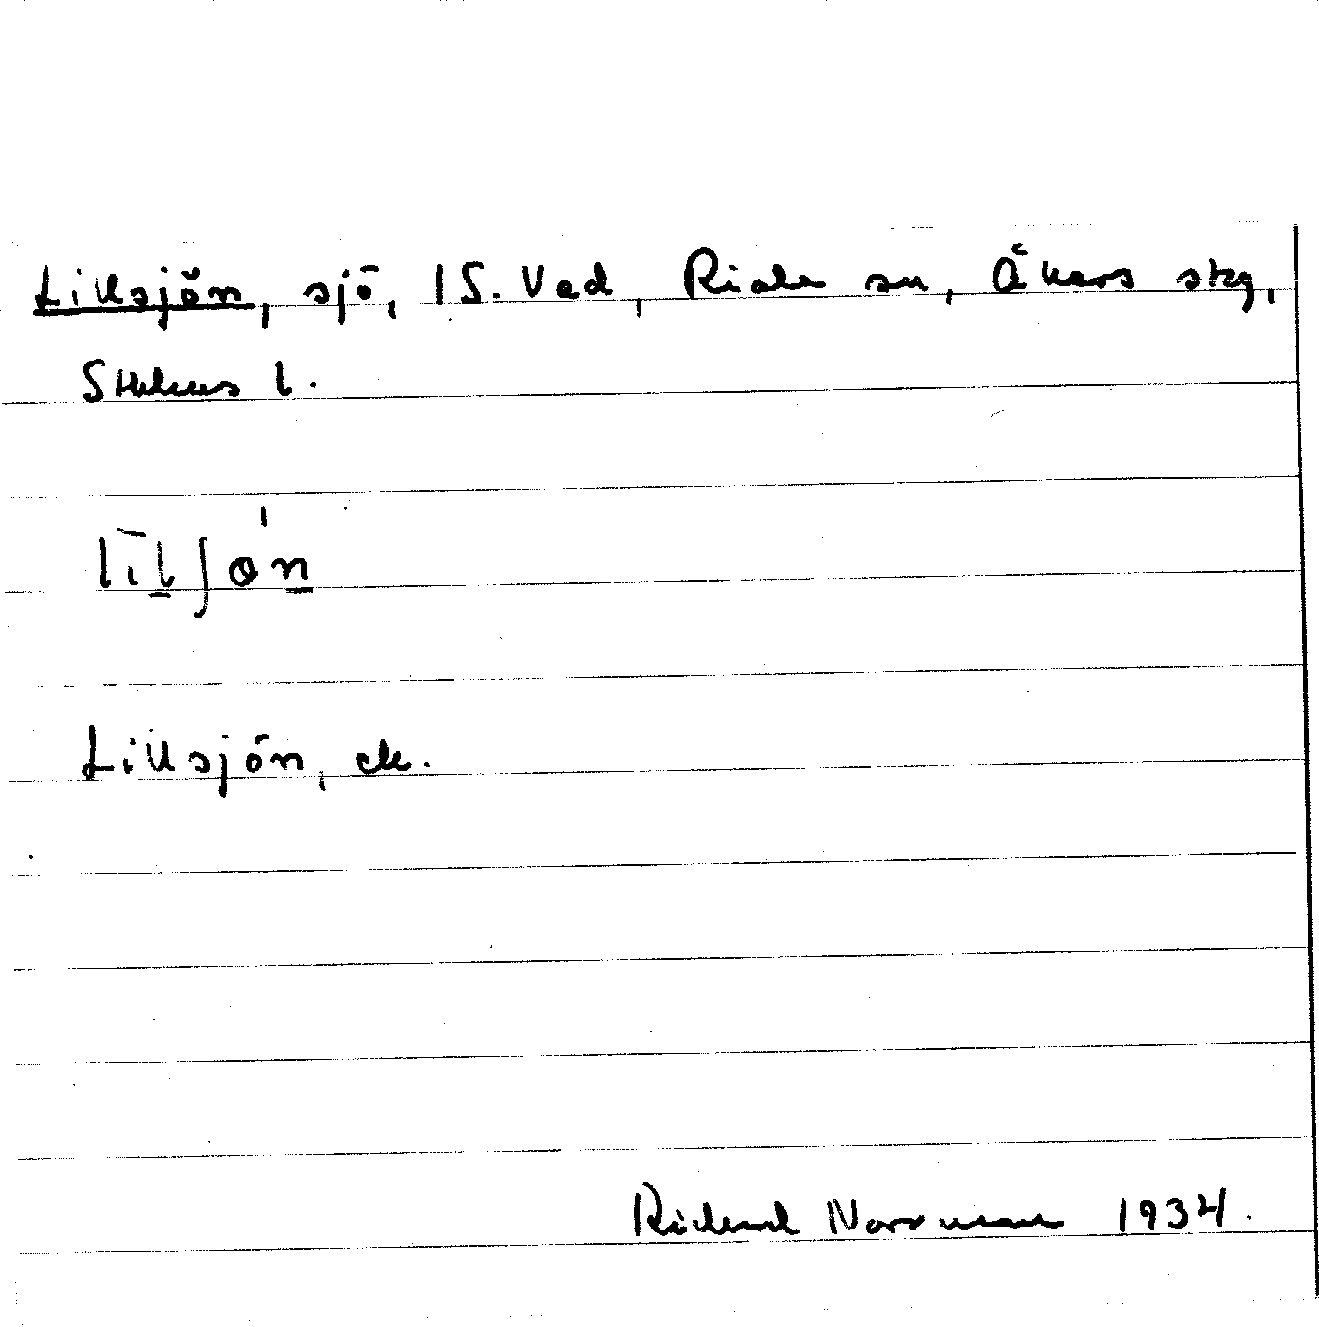 Lillsjön, sjö, 15. Vad, Riala sn, Åkers skg,
Sthlms l.
lı̄lʃǿn
Lillsjön, ek.
Richard Norrman 1934.